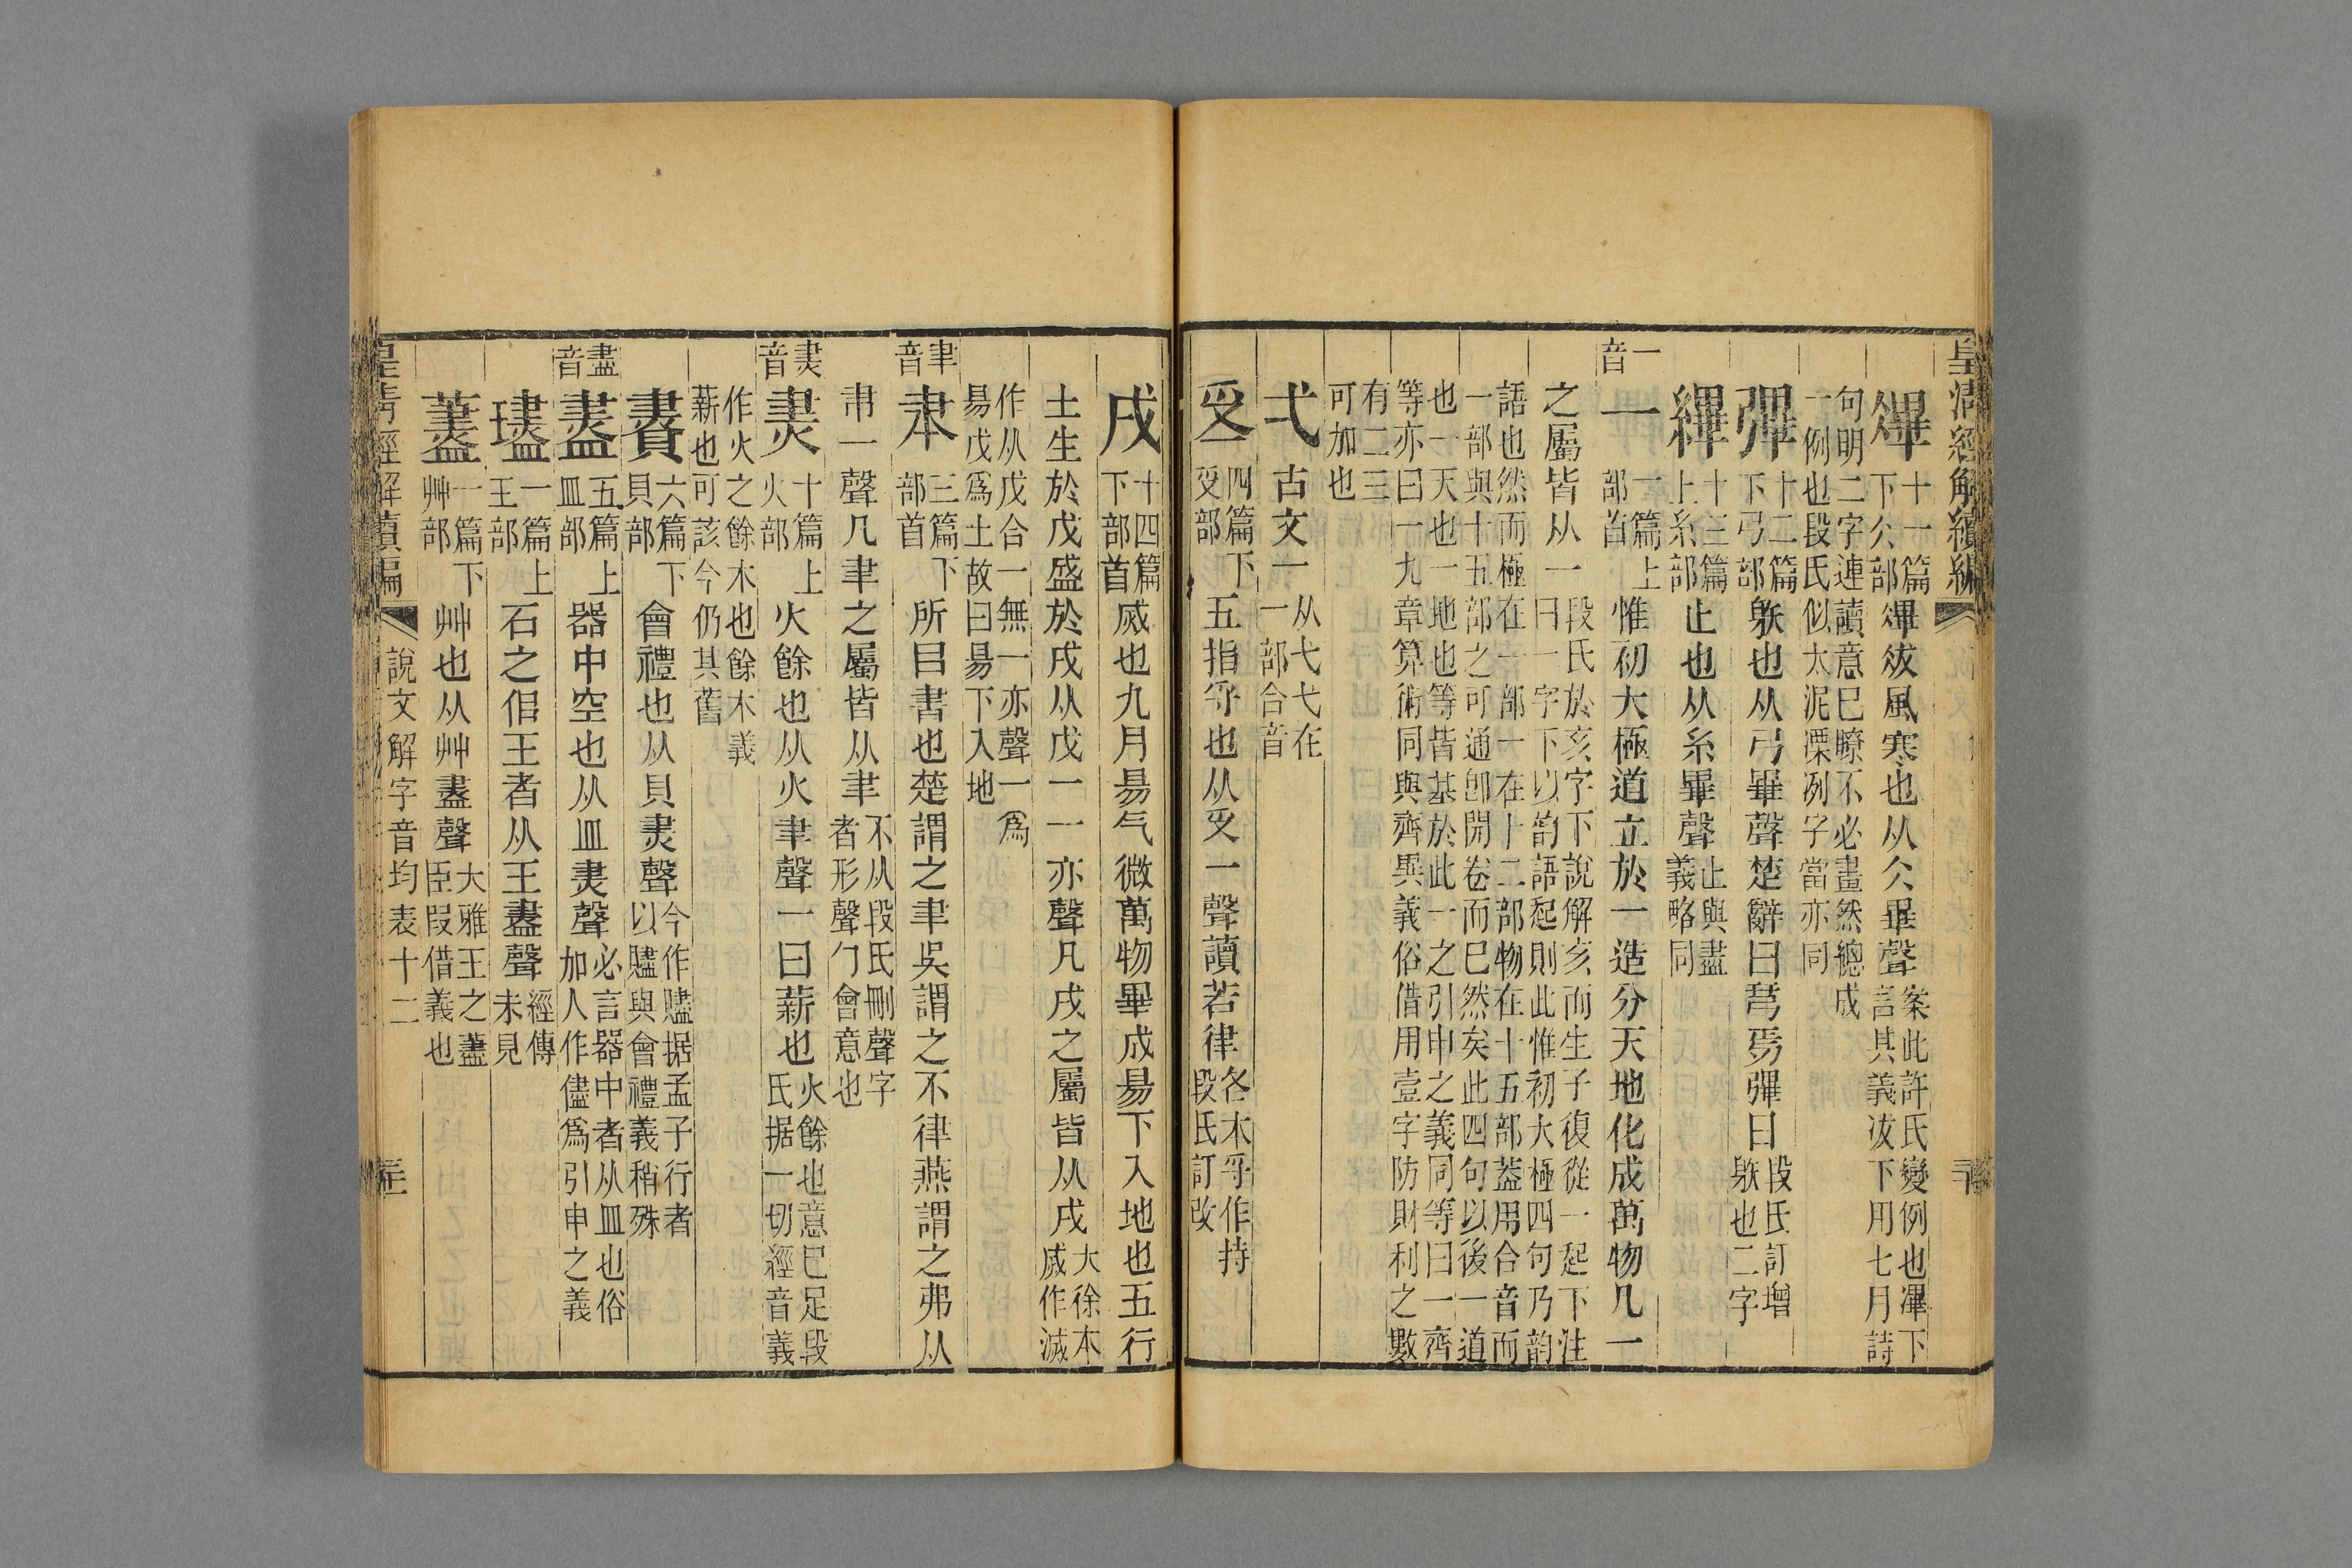 皇清經解續編
㓖十一篇下仌部㓖冹風寒也从仌畢聲案此許氏變例也㓖下言其義冹下用七月詩
句明二字連讀意已瞭不必畫然總成一例也段氏似太泥凓冽字當亦同
彃十二篇下弓部䠶也从弓畢聲楚辭曰芎焉彃日段氏訂增䠶也二字
縪十三篇上糸部止也从糸畢聲止與盡義略同
一音
一一篇上部首惟初大極道立於一造分天地化成萬物凡一
之屬皆从一段氏於亥字下說解亥而生子復從一起下注曰一字下以韵語起則此惟初大極四句乃韵
語也然而極在一部一在十二部物在十五部蓋用合音而一部與十五部之可通卽開卷而已然矣此四句以後一道
也一天也一地也等皆基於此一之引申之義同等曰一齊等亦曰一九章算術同與齊異義俗借用壹字防財利之數
有二三可加也
弌古文一从弋弋在一部合音
㝇四篇下𠬪部五指寽也从𠬪一聲讀若律各本寽作持段氏訂改
戌十四篇下部首烕也九月昜气微萬物畢成昜下入地也五行
土生於戊盛於戌从戊一一亦聲凡戌之屬皆从戌大徐本烕作滅
作从戊合一無一亦聲一爲昜戊爲土故曰昜下入地
聿音
聿三篇下部首所㠯書也楚謂之聿吳謂之不律燕謂之弗从
𦘒一聲凡聿之屬皆从聿不从段氏刪聲字者形聲勹會意也
㶳音
㶳十篇上火部火餘也从火聿聲一曰薪也火餘也意已足段氏据一切經音義
作火之餘木也餘木義薪也可該今仍其舊
賮六篇下貝部會禮也从貝㶳聲今作贐据孟子行者以贐與會禮義稍殊
盡音
盡五篇上皿部器中空也从皿㶳聲必言器中者从皿也俗加人作儘爲引申之義
璶一篇上王部石之佀王者从王盡聲經傳未見
藎一篇下艸部艸也从艸盡聲大雅王之藎臣叚借義也
皇清經解續編
說文解字音均表十二